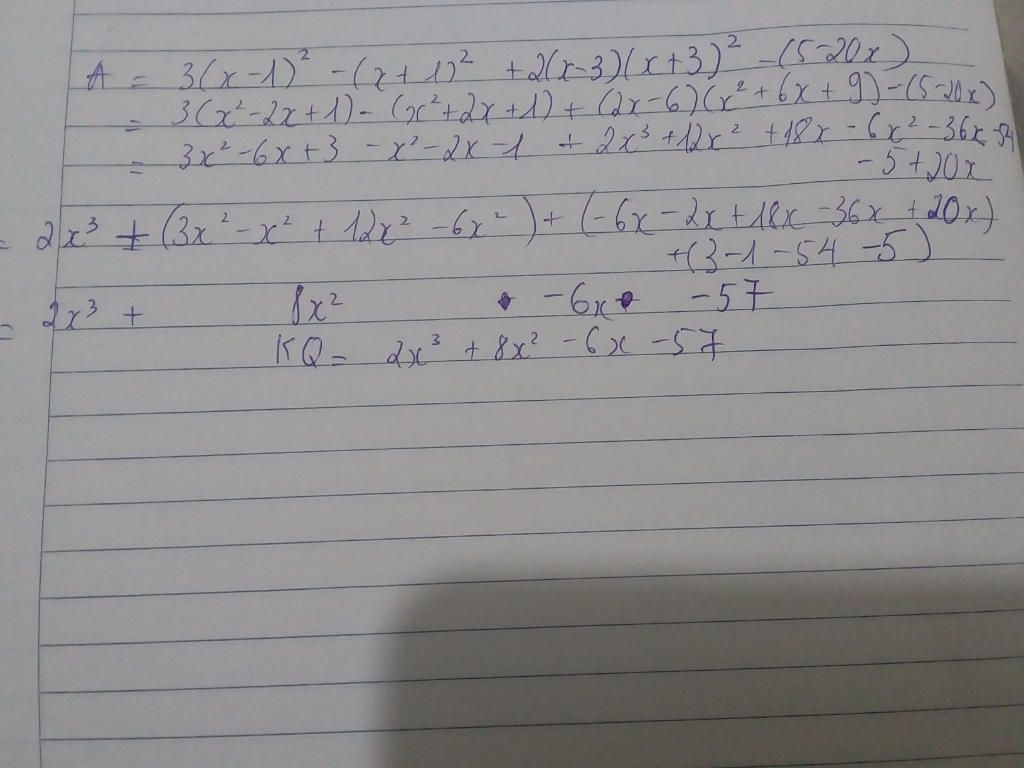 A = 3(x-1)² - (x+1)² + 2(x-3)(x+3)² - (5-20x)
= 3(x²-2x+1) - (x²+2x+1) + (2x-6)(x²+6x+9) - (5-20x)
= 3x²-6x+3 -x²-2x-1 + 2x³+12x²+18x-6x²-36x-54
-5+20x
= 2x³ + (3x²-x²+12x²-6x²) + (-6x-2x+18x-36x+20x)
+(3-1-54-5)
= 2x³ + 8x² -6x -57
KQ = 2x³ + 8x² - 6x - 57